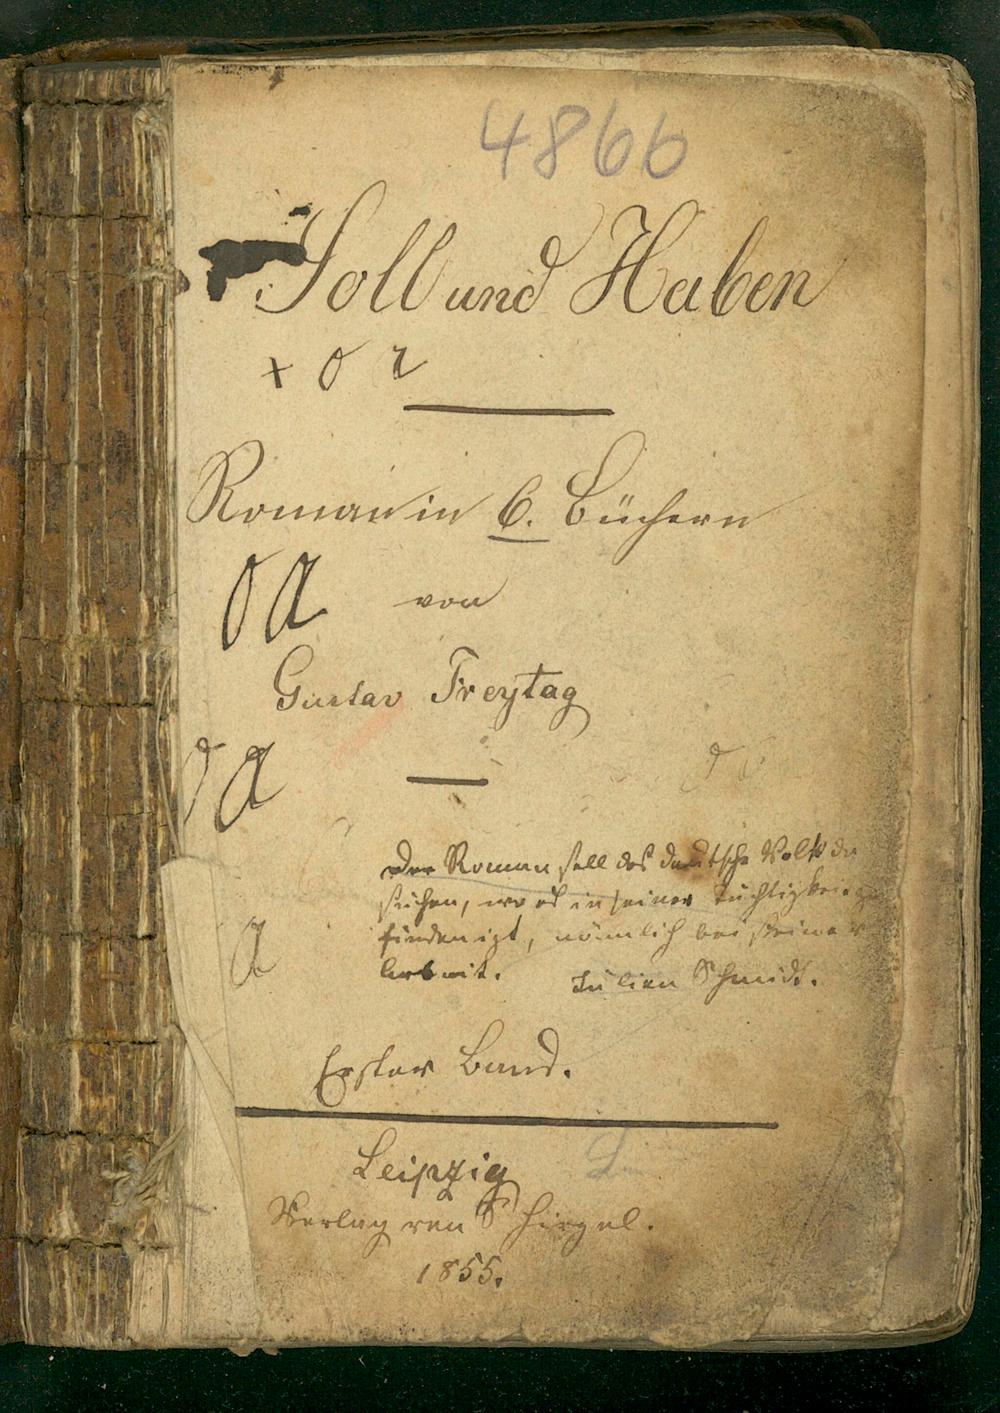 4866
Soll und Haben
+ O r
Roman in 6. Büchern
O A von
Gustav Freytag
A
Der Roman soll das deutsche Volk da
suchen, wo es in seiner Tüchtigkeit zu
finden ist, nämlich bei seiner
Arbeit. Julian Schmidt.
Erster Band.
Leipzig
Verlag von S Hirzel.
1855.